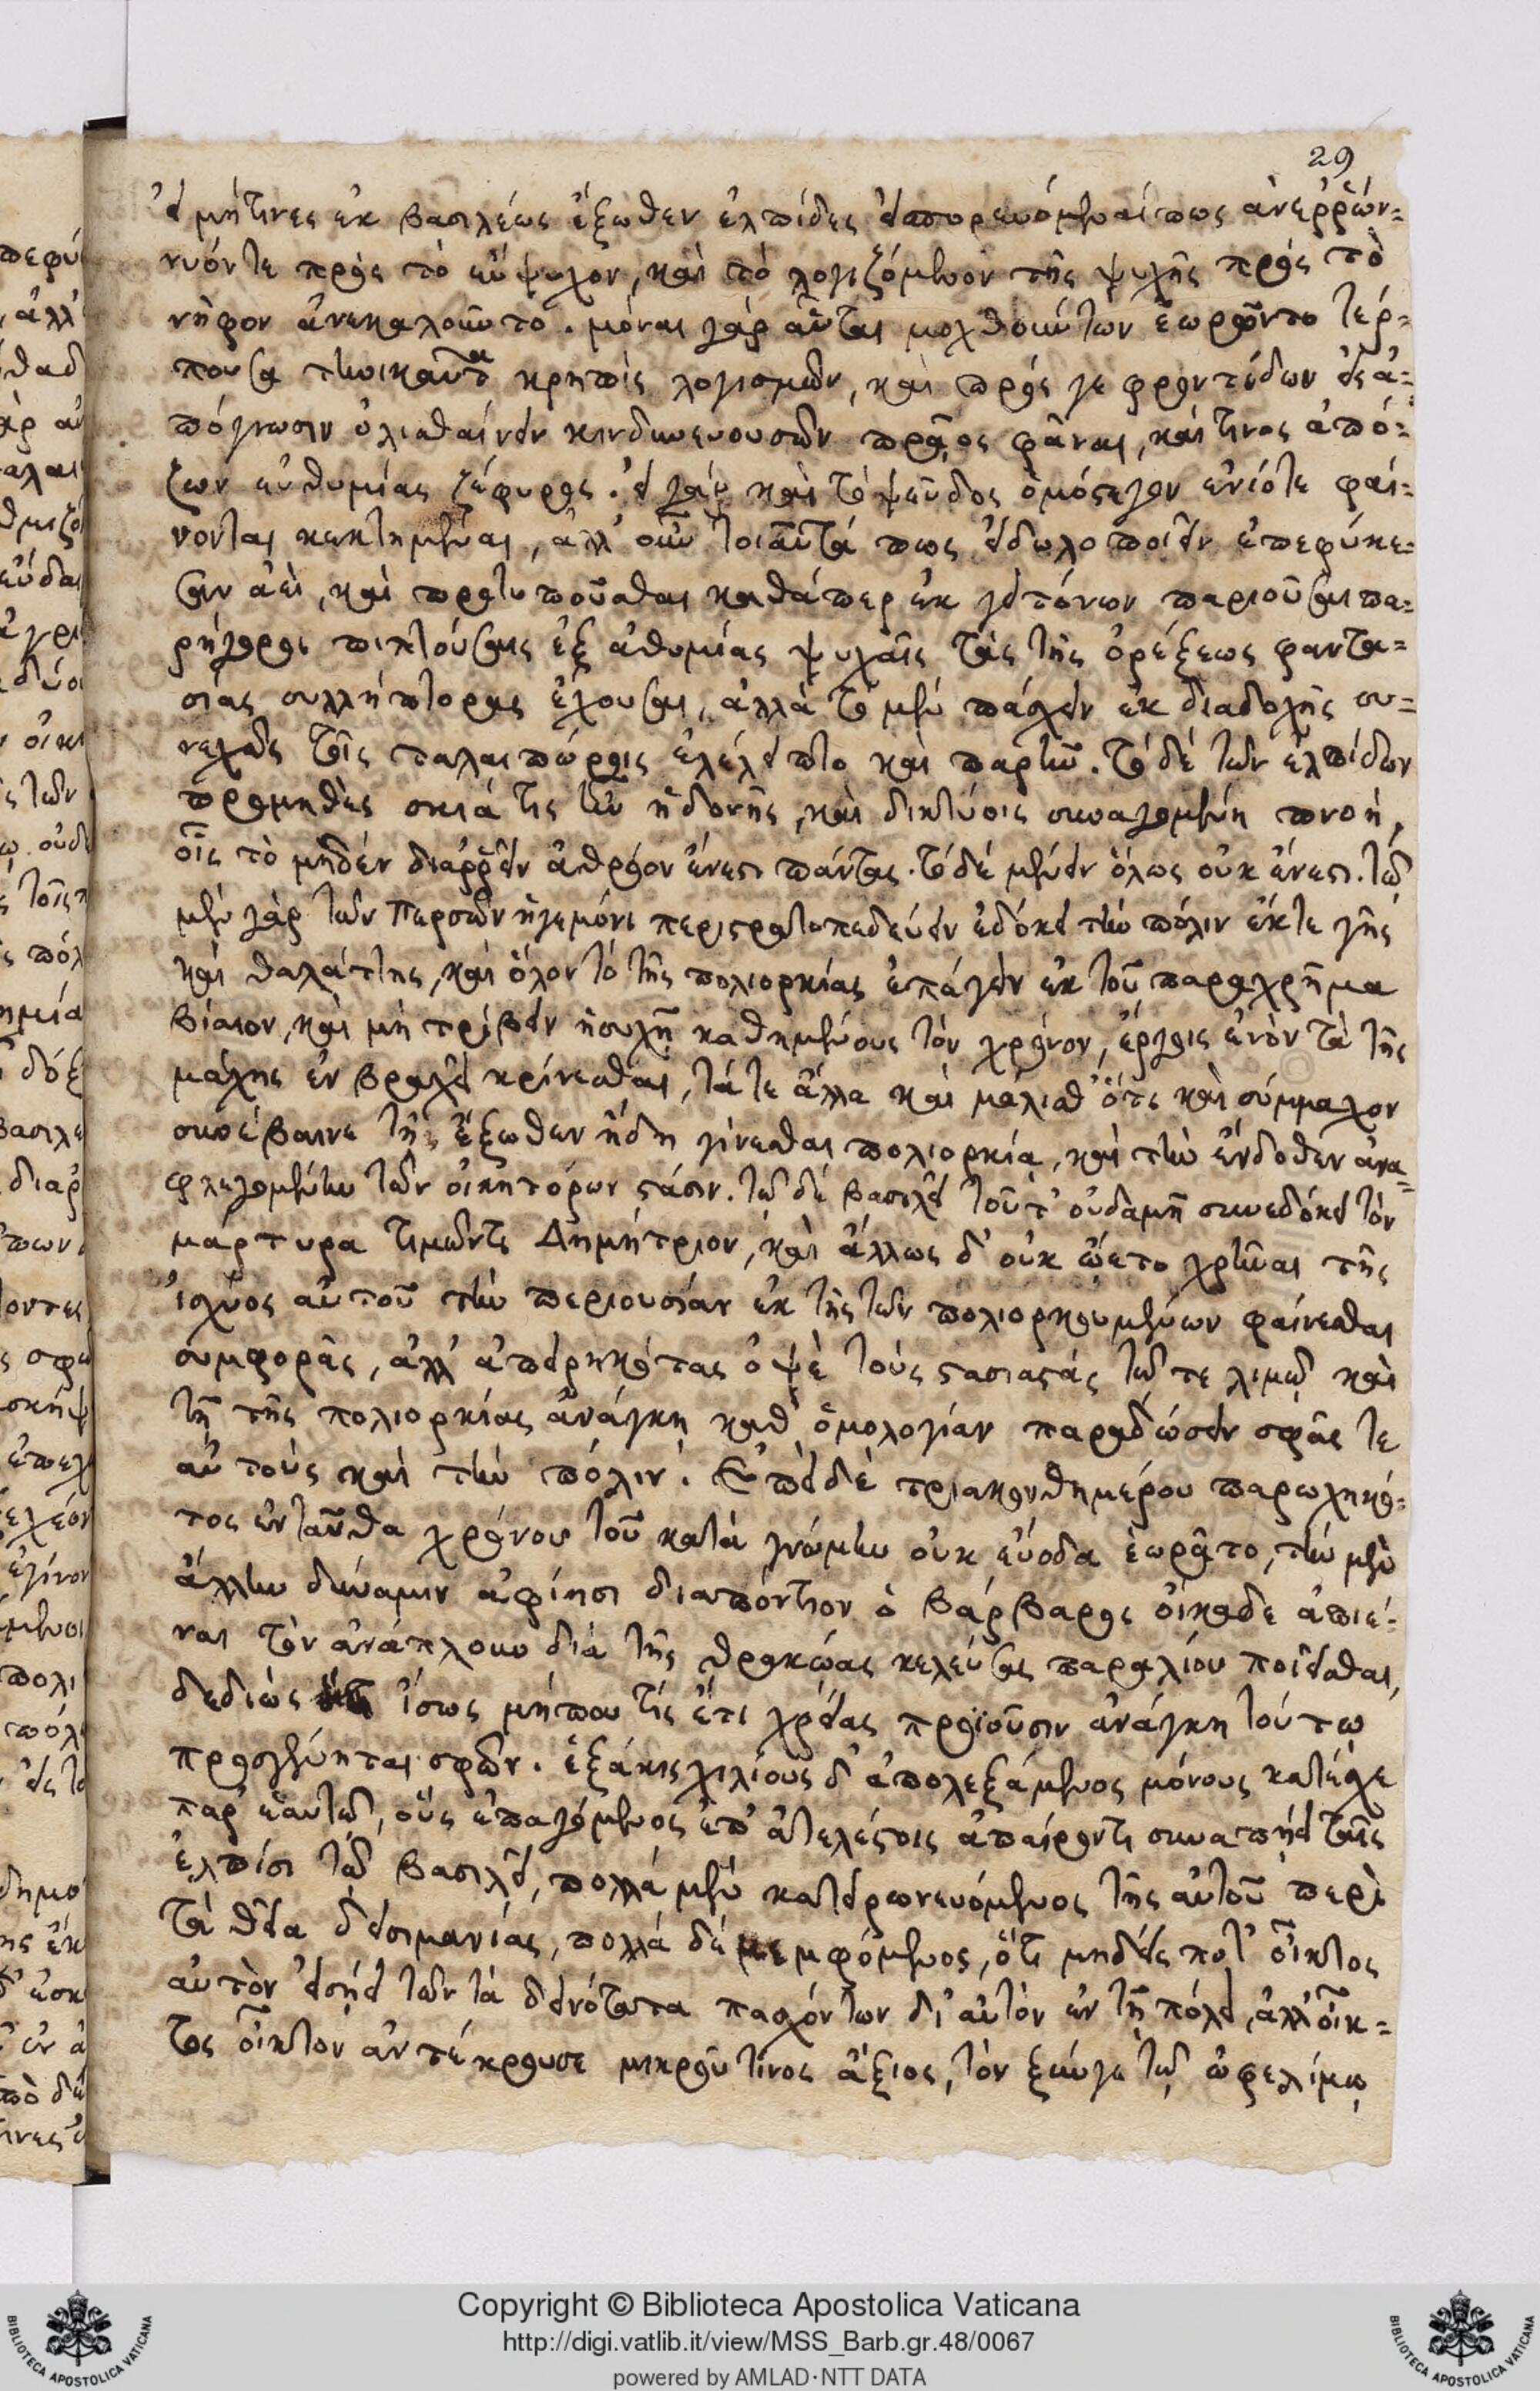 29
εἰ μήτινες ἐκ βασιλέως ἔξωθεν ἐλπίδες εἰσπορευόμεναί πως ἀνεῤῥών=
νυόν τε πρὸς τὸ εὔψυχον, καὶ τὸ λογιζόμενον τῆς ψυχῆς πρὸς τὸ
νῆφον ἀνεκαλοῦντο. μόναι γὰρ αὗται μοχθούντων ἑωρῶντο τέρ=
πουσα τηνικαῦτα κρηπὶς λογισμῶν, καὶ πρός γε φροντίδων εἰς ἀ=
πόγνωσιν ὀλισθαίνειν κινδυνευουσῶν πρᾶος φᾶναι, καί τινος ἀπό=
ζων εὐθυμίας ζέφυρος. εἰ γὰρ καὶ τὸ ψεῦδος ὁμόστεγον ἐνίοτε φαί=
νονται κεκτημέναι, ἀλλ' οὖν τοιαῦτά πως εἰδωλοποιεῖν ἐπεφύκε=
σαν ἀεὶ, καὶ προτυποῦσθαι καθάπερ ἐκ γειτόνων παριοῦσαι πα=
ρήγοροι πιπτούσαις ἐξ ἀθυμίας ψυχαῖς τὰς τῆς ὀρέξεως φαντα=
σίας συλλήπτορας ἔχουσαι, ἀλλὰ τὸ μὲν πάσχειν ἐκ διαδοχῆς συ=
νεχῶς τοῖς ταλαιπώροις ἐλέλειπτο καὶ παρῆν. τὸ δὲ τῶν ἐλπίδων
προμηθὲς σκιά τις ἦν ἡδονῆς, καὶ δικτύοις συναγομένη πνοὴ,
οἷς τὸ μηδὲν διαῤῥεῖν ἀθρόον ἔνεστι πάντας. τὸ δὲ μένειν ὅλως οὐκ ἔνεστι. τῷ
μὲν γὰρ τῶν Περσῶν ἡγεμόνι περιστρατοπεδεύειν ἐδόκει τὴν πόλιν ἔκ τε γῆς
καὶ θαλάττης, καὶ ὅλον τὸ τῆς πολιορκίας ἐπάγειν ἐκ τοῦ παραχρῆμα
βίαιον, καὶ μὴ τρίβειν ἡσυχῆ καθημένους τὸν χρόνον, ἔργοις ἐνὸν τὰ τῆς
μάχης ἐν βραχεῖ κρίνεσθαι, τά τε ἄλλα καὶ μάλισθ' ὅτε καὶ σύμμαχον
συνέβαινε τῆς ἔξωθεν ἤδη γίνεσθαι πολιορκία, καὶ τὴν ἔνδοθεν ἀνα=
φλεγομένην τῶν οἰκητόρων στάσιν. τῷ δὲ βασιλεῖ τοῦτ' οὐδαμῆ συνεδόκει τὸν
μάρτυρα τιμῶντι Δημήτριον, καὶ ἄλλως δ' οὐκ ᾤετο χρῆναι τῆς
ἰσχύος αὐτοῦ τὴν περιουσίαν ἐκ τῆς τῶν πολιορκουμένων φαίνεσθαι
συμφορᾶς, ἀλλ' ἀπειρηκότας ὀψὲ τοὺς στασιαστὰς τῷ τε λιμῷ καὶ
τῇ τῆς πολιορκίας ἀνάγκῃ καθ' ὁμολογίαν παραδώσειν σφᾶς τε
αὐτοὺς καὶ τὴν πόλιν. Ἐπεὶ δὲ τριακονθημέρου παρῳχηκό=
τος ἐνταῦθα χρόνου τοῦ κατὰ γνώμην οὐκ εὔοδα ἑωρᾶτο, τὴν μὲν
ἄλλην δύναμιν ἀφίησι διαπόντιον ὁ Βάρβαρος οἴκαδε ἀπιέ=
ναι τὸν ἀνάπλουν διὰ τῆς θρᾳκώας κελεύσας παραλίου ποιεῖσθαι,
δεδιὼς ἴσως μήπου τίς ἔτι χρείας προϊοῦσιν ἀνάγκη τούτῳ
προσγένηται σφῶν. ἑξάκις χιλίους δ' ἀπολεξάμενος μόνους κατέσχε
παρ' ἑαυτῷ, οὓς ἐπαγόμενος ἐπ' ἀτελέστοις ἀπαίροντι συναπῄει ταῖς
ἐλπίσι τῷ βασιλεῖ, πολλὰ μὲν κατειρωνευόμενος τῆς αὐτοῦ περὶ
τὰ θεῖα δεισιμανίας, πολλὰ δὲ μεμφόμενος, ὅτι μηδεὶς ποτ' οἶκτος
αὐτὸν εἰσῄει τῶν τὰ δεινότατα πασχόντων δι' αὐτὸν ἐν τῇ πόλει, ἀλλ' οἶκ=
τος οἶκτον ἀντέκρουσε μικροῦ τινος ἄξιος, τὸν ξύν γε τῷ ὠφελίμῳ
Copyright © Biblioteca Apostolica Vaticana
http://digi.vatlib.it/view/MSS_Barb.gr.48/0067
powered by AMLAD·NTT DATA
BIBLIOTECA APOSTOLICA VATICANA
BIBLIOTECA APOSTOLICA VATICANA